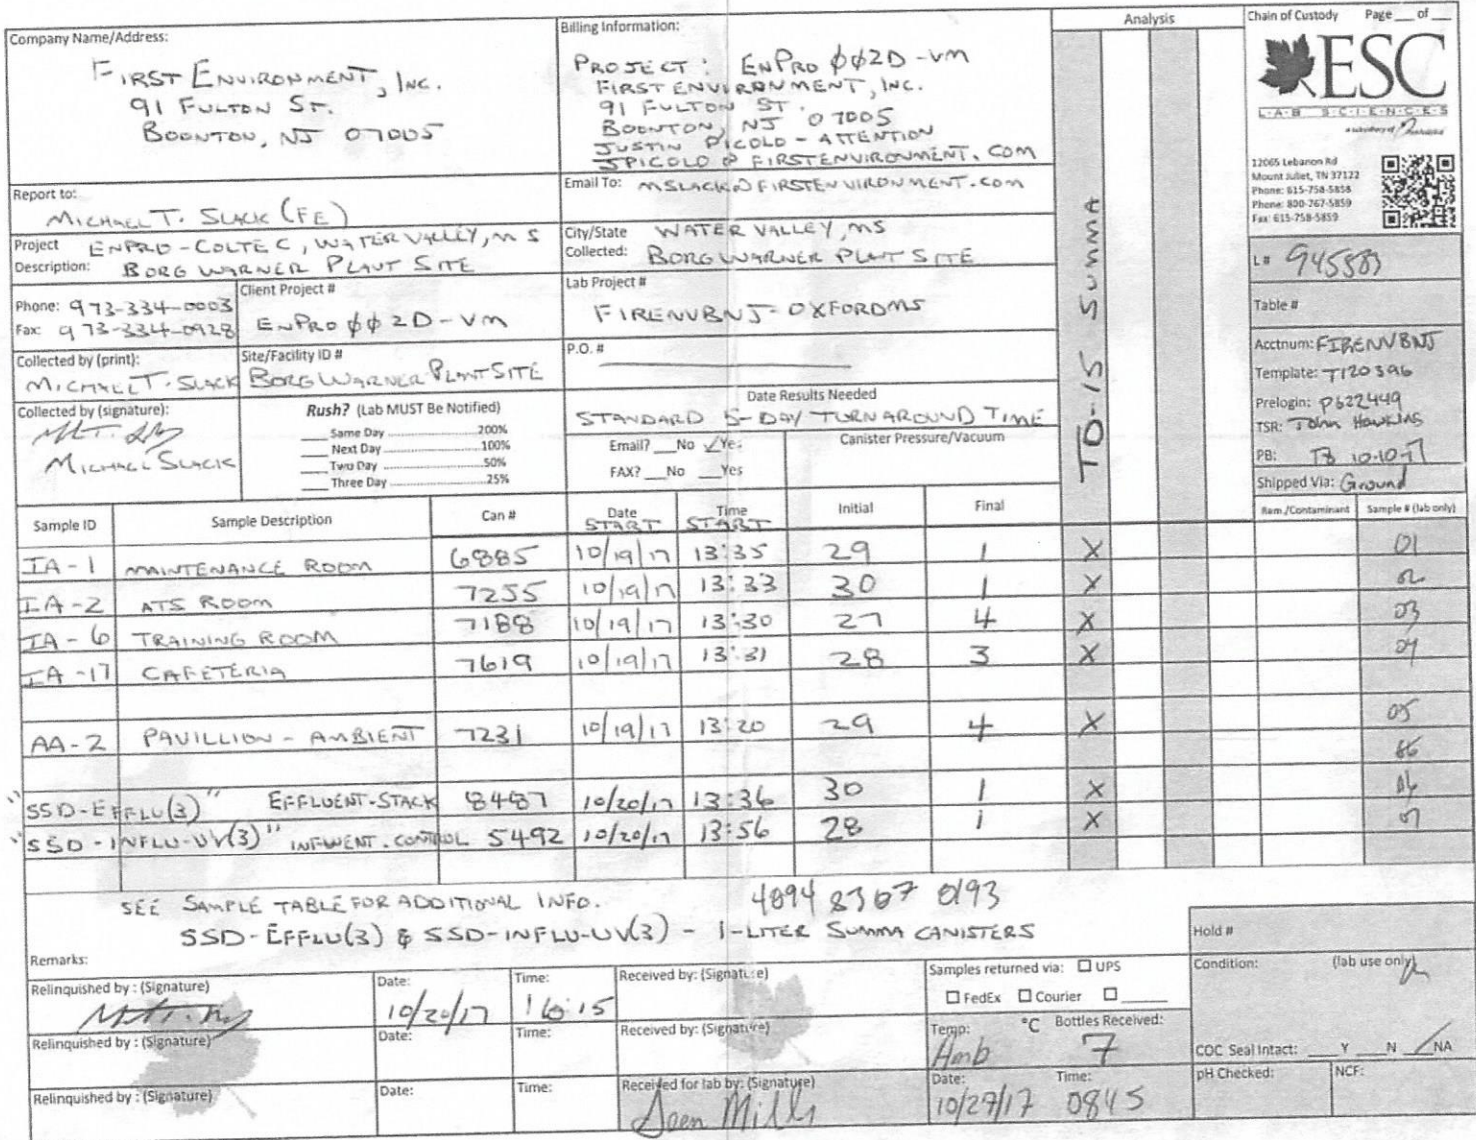 Company Name/Address:
FIRST ENVIRONMENT, INC.
91 FULTON ST.
BOONTON, NJ 07005
Billing Information:
PROJECT: ENPRO ϕϕ2D-VM
FIRST ENVIRONMENT, INC.
91 FULTON ST.
BOONTON, NJ 07005
JUSTIN PICOLO - ATTENTION
JPICOLO @ FIRSTENVIRONMENT.COM
Analysis
Chain of Custody Page ___ of ___
ESC
L·A·B S·C·I·E·N·C·E·S
a subsidiary of
12065 Lebanon Rd
Mount Juliet, TN 37122
Phone: 615-758-5858
Phone: 800-767-5859
Fax: 615-758-5859
Report to:
MICHAEL T. SLACK (FE)
Email To: MSLACK@FIRSTENVIRONMENT.COM
Project Description: ENPRO-COLTEC, WATER VALLEY, MS
BORG WARNER PLANT SITE
City/State Collected: WATER VALLEY, MS
BORG WARNER PLANT SITE
TO-15 SUMMA
L# 945583
Table #
Phone: 973-334-0003
Fax: 973-334-0928
Client Project #
ENPRO ϕϕ2D-VM
Lab Project #
FIRENVBNJ-OXFORDMS
Collected by (print):
MICHAEL T. SLACK
Site/Facility ID #
BORG WARNER PLANT SITE
P.O. #
Acctnum: FIRENVBNJ
Template: T120396
Prelogin: P622449
TSR: John Hawkins
PB: 10-10-17
Shipped Via: Ground
Collected by (signature):
MICHAEL SLACK
Rush? (Lab MUST Be Notified)
___ Same Day ........ 200%
___ Next Day ........ 100%
___ Two Day ........ 50%
___ Three Day ........ 25%
Date Results Needed
STANDARD 5-DAY TURNAROUND TIME
Email? __No ✓Yes
FAX? __No __Yes
Canister Pressure/Vacuum
Sample ID Sample Description Can # Date START Time START Initial Final Rem./Contaminant Sample # (lab only)
IA-1 MAINTENANCE ROOM 6885 10/19/17 13:35 29 1 X 01
IA-2 ATS ROOM 7255 10/19/17 13:33 30 1 X 02
IA-6 TRAINING ROOM 7188 10/19/17 13:30 27 4 X 03
IA-17 CAFETERIA 7619 10/19/17 13:31 28 3 X 04
AA-2 PAVILLION - AMBIENT 7231 10/19/17 13:20 29 4 X 05
"SSD-EFFLU(3)" EFFLUENT-STACK 8487 10/20/17 13:36 30 1 X 06
"SSD-INFLU-UV(3)" INFLUENT.CONTROL 5492 10/20/17 13:56 28 1 X 07
SEE SAMPLE TABLE FOR ADDITIONAL INFO.
4894 8367 0193
SSD-EFFLU(3) & SSD-INFLU-UV(3) - 1-LITER SUMMA CANISTERS
Remarks:
Hold #
Relinquished by : (Signature)
Date: 10/20/17
Time: 16:15
Received by: (Signature)
Samples returned via: ☐ UPS
☐ FedEx ☐ Courier ☐ _____
Condition: (lab use only)
Relinquished by : (Signature)
Date:
Time:
Received by: (Signature)
Temp: Amb °C
Bottles Received: 7
COC Seal Intact: ___Y ___N ✓NA
Relinquished by : (Signature)
Date:
Time:
Received for lab by: (Signature)
Mills
Date: 10/27/17
Time: 0845
pH Checked:
NCF: